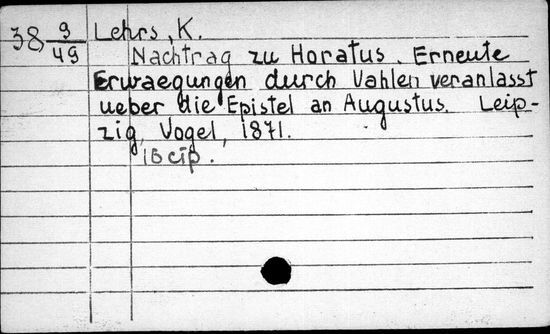 38 9/49
Lehrs, K.
Nachtrag zu Horatus. Erneute
Erwaegungen durch Vahlen veranlasst
ueber die Epistel an Augustus. Leip-
zig, Vogel, 1871.
16 стр.